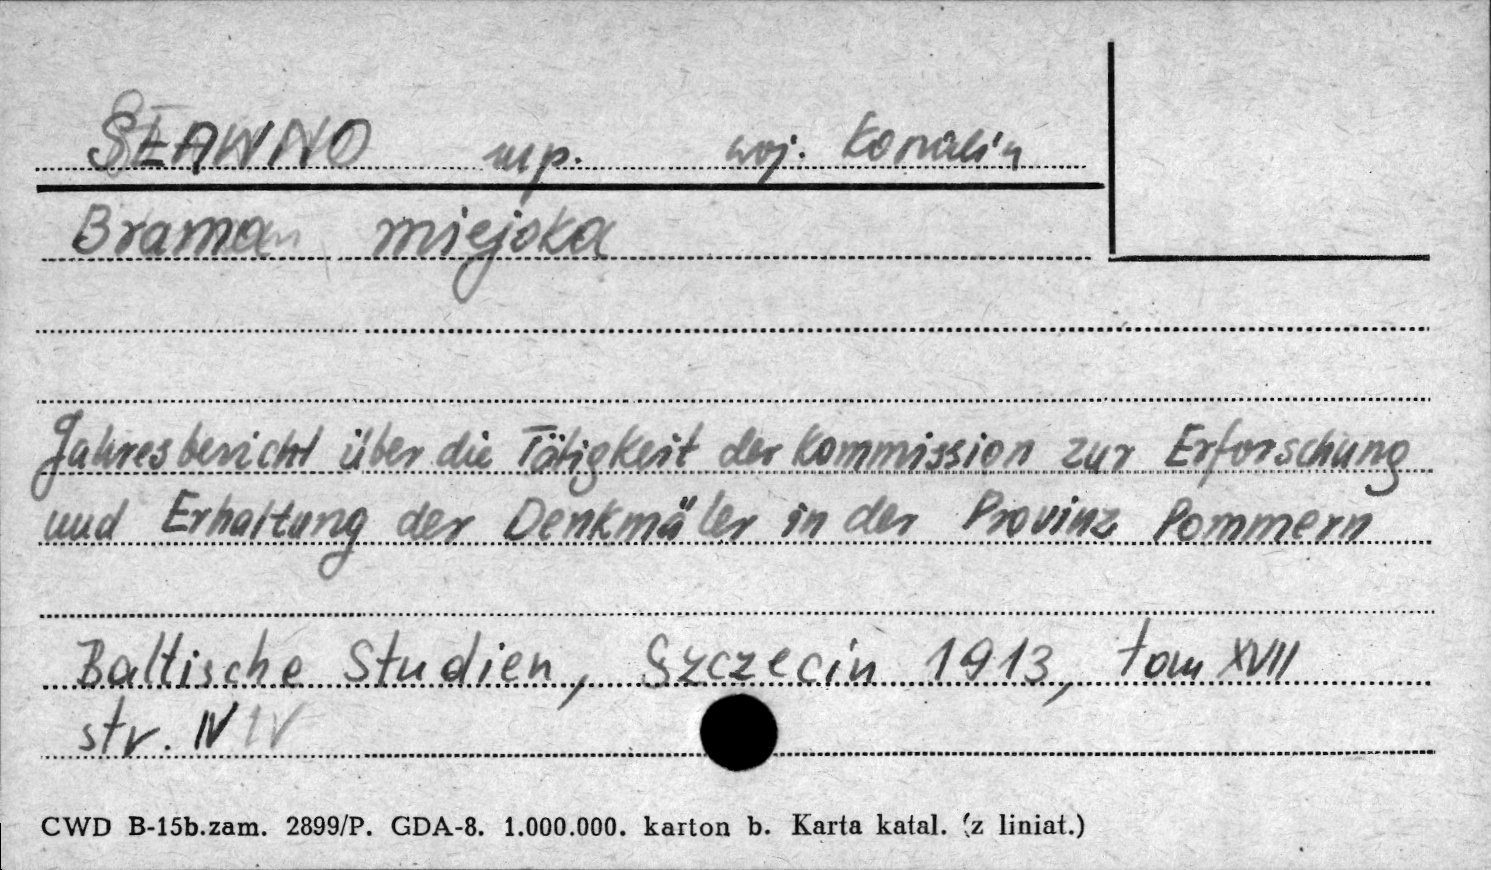 SŁAWNO mp. woj. Koszalin
Brama miejska
Jahresbericht über die Tätigkeit der Kommission zur Erforschung
und Erhaltung der Denkmäler in der Provinz Pommern
Baltische Studien, Szczecin 1913, tom XVII
str. IV IV
CWD B-15b.zam. 2899/P. GDA-8. 1.000.000. karton b. Karta katal. (z liniat.)